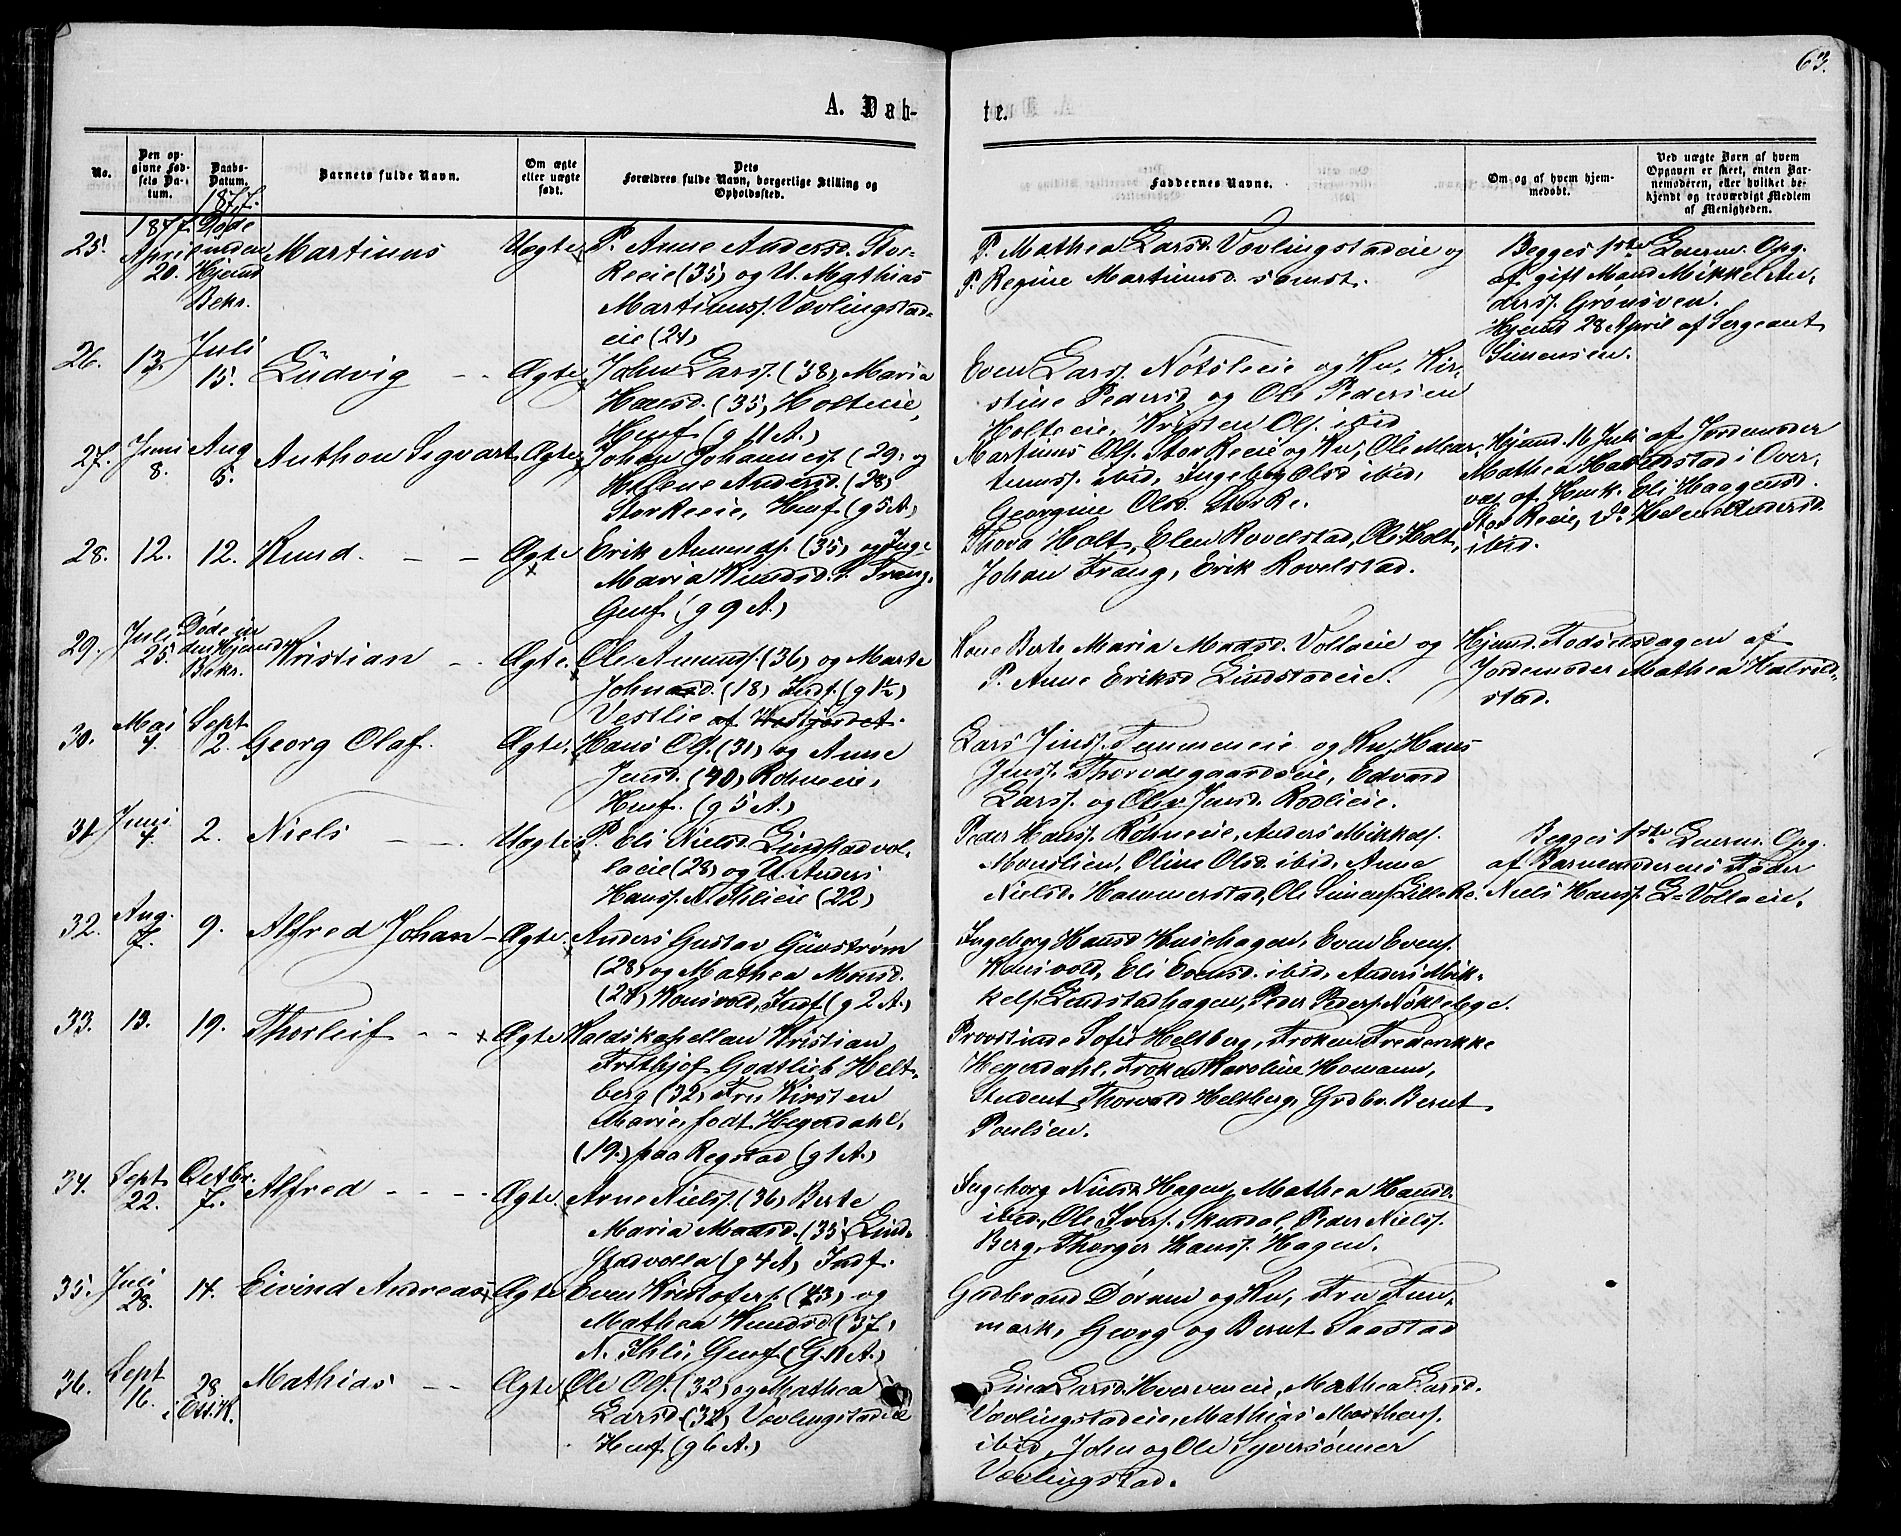 63.
A. Døb-
te.
No.
Den op-
givne Fød-
sels Da-
tum.
Daabs-
Datum.
1877.
Barnets fulde Navn.
Om ægte
eller uægte
født.
Dets
Forældres fulde Navn, borgerlige Stilling og
Opholdssted.
Faddernes Navne.
Om og af hvem hjem-
medøbt.
Ved uægte Børn af hvem
Opgaven er skeet, enten Bar-
nemoderen, eller hvilket be-
kjendt og troværdigt Medlem
af Menigheden.
25.
1877.
April
20.
Døde
inden
Hjemd
Bekr.
Martinus
Uegte
P. Anne Andersd. Stor-
Reeie (35) og U. Mathias
Martinuss. Vævlingstad-
eie (24)
P. Mathea Larsd. Vævlingstadeie og
P. Regine Martinusd. samst.
Begges 1ste Leierm. Opg.
af gift Mand Mikkel An-
derss. Grønsven.
Hjemd 28 April af Sergeant
Simensen.
26.
13.
Juli
15.
Ludvig
Ægte
John Larss. (38) Maria
Hansd. (35) Holteie,
Husf (g 11 A.)
Even Larss. Nötsleie og Ku, Kir-
stine Pedersd. og Ole Pedersen
Holteie, Kristen Ols. ibid
27.
Juni
8.
Aug
5.
Anthon Sigvart
Ægte
Johan Johanness. (29) og
Helene Andersd. (28)
Storkeeie, Husf (g 5 A.)
Martinus Ols. Stor Reeie og Ku, Ole Mar-
tinuss. ibid, Ingeborg Olsd ibid,
Georgine Olsd. StorRe.
Hjemd. 16 Juli af Jordemoder
Mathea Halvedstad i Over-
vær af Husk. Eli Haagensd.
Stor Reeie, do Helene Andersd.
ibid.
28.
12.
12.
Knud.
Ægte
Erik Amunds. (35) og Inge
Maria Knudsd. Trang.
Husf. (g 9 A.)
Thora Holt, Elen Rovelstad, Ole Holt,
Johan Trang, Erik Rovelstad.
29.
Juli
25.
Døde in
den Hjemd
Bekr.
Kristian
Ægte.
Ole Amunds. (36) og Marte
Johnsd. (18) Indf. (g 1½)
Vestlie
Kone Berte Maria Madsd. Vollaeie og
P. Anne Eriksd Lindstadeie.
Hjemd. Fødselsdagen af
Jordemoder Mathea Halvild-
stad.
30.
Mai
4.
Sept
2.
Georg Olaf.
Ægte.
Hans Ols. (31) og Anne
Jensd. (40) Rolneeie,
Husf. (g 5 A.)
Lars Jenss. Tummeneie og Ku, Hans
Jenss. Thorodegaardseie, Edvard
Larss. og Olea Jensd. Rodlieie.
31
Juni
4.
2.
Niels
Uegte
P. Eli Nielsd. Lindstadvol-
laeie (28) og U. Anders
Hanss. N. Ihlieie (22)
Peder Hanss. Rolneeie, Anders Mikkels.
Monslien, Oline Olsd. ibid. Anne
Nielsd. Hammerstad, Ole Simens. LilleRe.
Begges 1ste Leierm. Opg.
af Barnemoderens Fader
Niels Hanss. L-Vollaeie.
32.
Aug.
7.
9.
Alfred Johan
Ægte.
Anders Gustav Günstrøm
(28) og Mathea Monsd.
(24) Konsvold, Indf (g 2 A.)
Ingeborg Hansd Husehagen, Even Evens.
Konsvold, Eli Evensd. ibid, Anders Mik-
kels. Lindstadhagen, Peder Peders. Nøklebye.
33.
13.
19.
Thorleif
Ægte
Kaldskapellan Kristian
Frithjof Godtlieb Helt-
berg (32) Fru Kirsten
Marie, født Hegerdahl,
(19.) paa Regstad (g 1 A.)
Provstinde Sofie Heltberg, Frøken Frederikke
Hegerdahl, Frøken Karoline Homann,
Student Thorvald Heltberg, Gdbr. Bernt
Poulsen.
34.
Sept
22.
Octbr.
7.
Alfred
Ægte.
Arne Niels. (36) Berte
Maria Madsd. (35) Lind-
stadvolla (g 4 A.) Indf.
Ingeborg Nielsd Hagen, Mathea Hansd.
ibid, Ole Ivers. Skusdal, Peder Niels.
Berg, Thorger Hanss. Hagen.
35.
Juli
28.
14.
Eivind Andreas
Ægte
Even Kristofers. (43) og
Mathea Knudsd (37)
N. Ihli, Husf (g. 11 A.)
Gudbrand Dørum og Ku, Fru Fin-
mark, Georg og Bernt Saastad
36.
Sept
16.
28.
i Ett.K.
Mathias
Ægte
Ole Ols. (32) og Mathea
Larsd. (32) Vævlingstadeie
Husf (g 6 A.)
Lina Larsd. Hverveneie, Mathea Larsd.
Vævlingstadeie, Mathias Mathens.
ibid, John og Ole Syversønner
Vævlingstad.